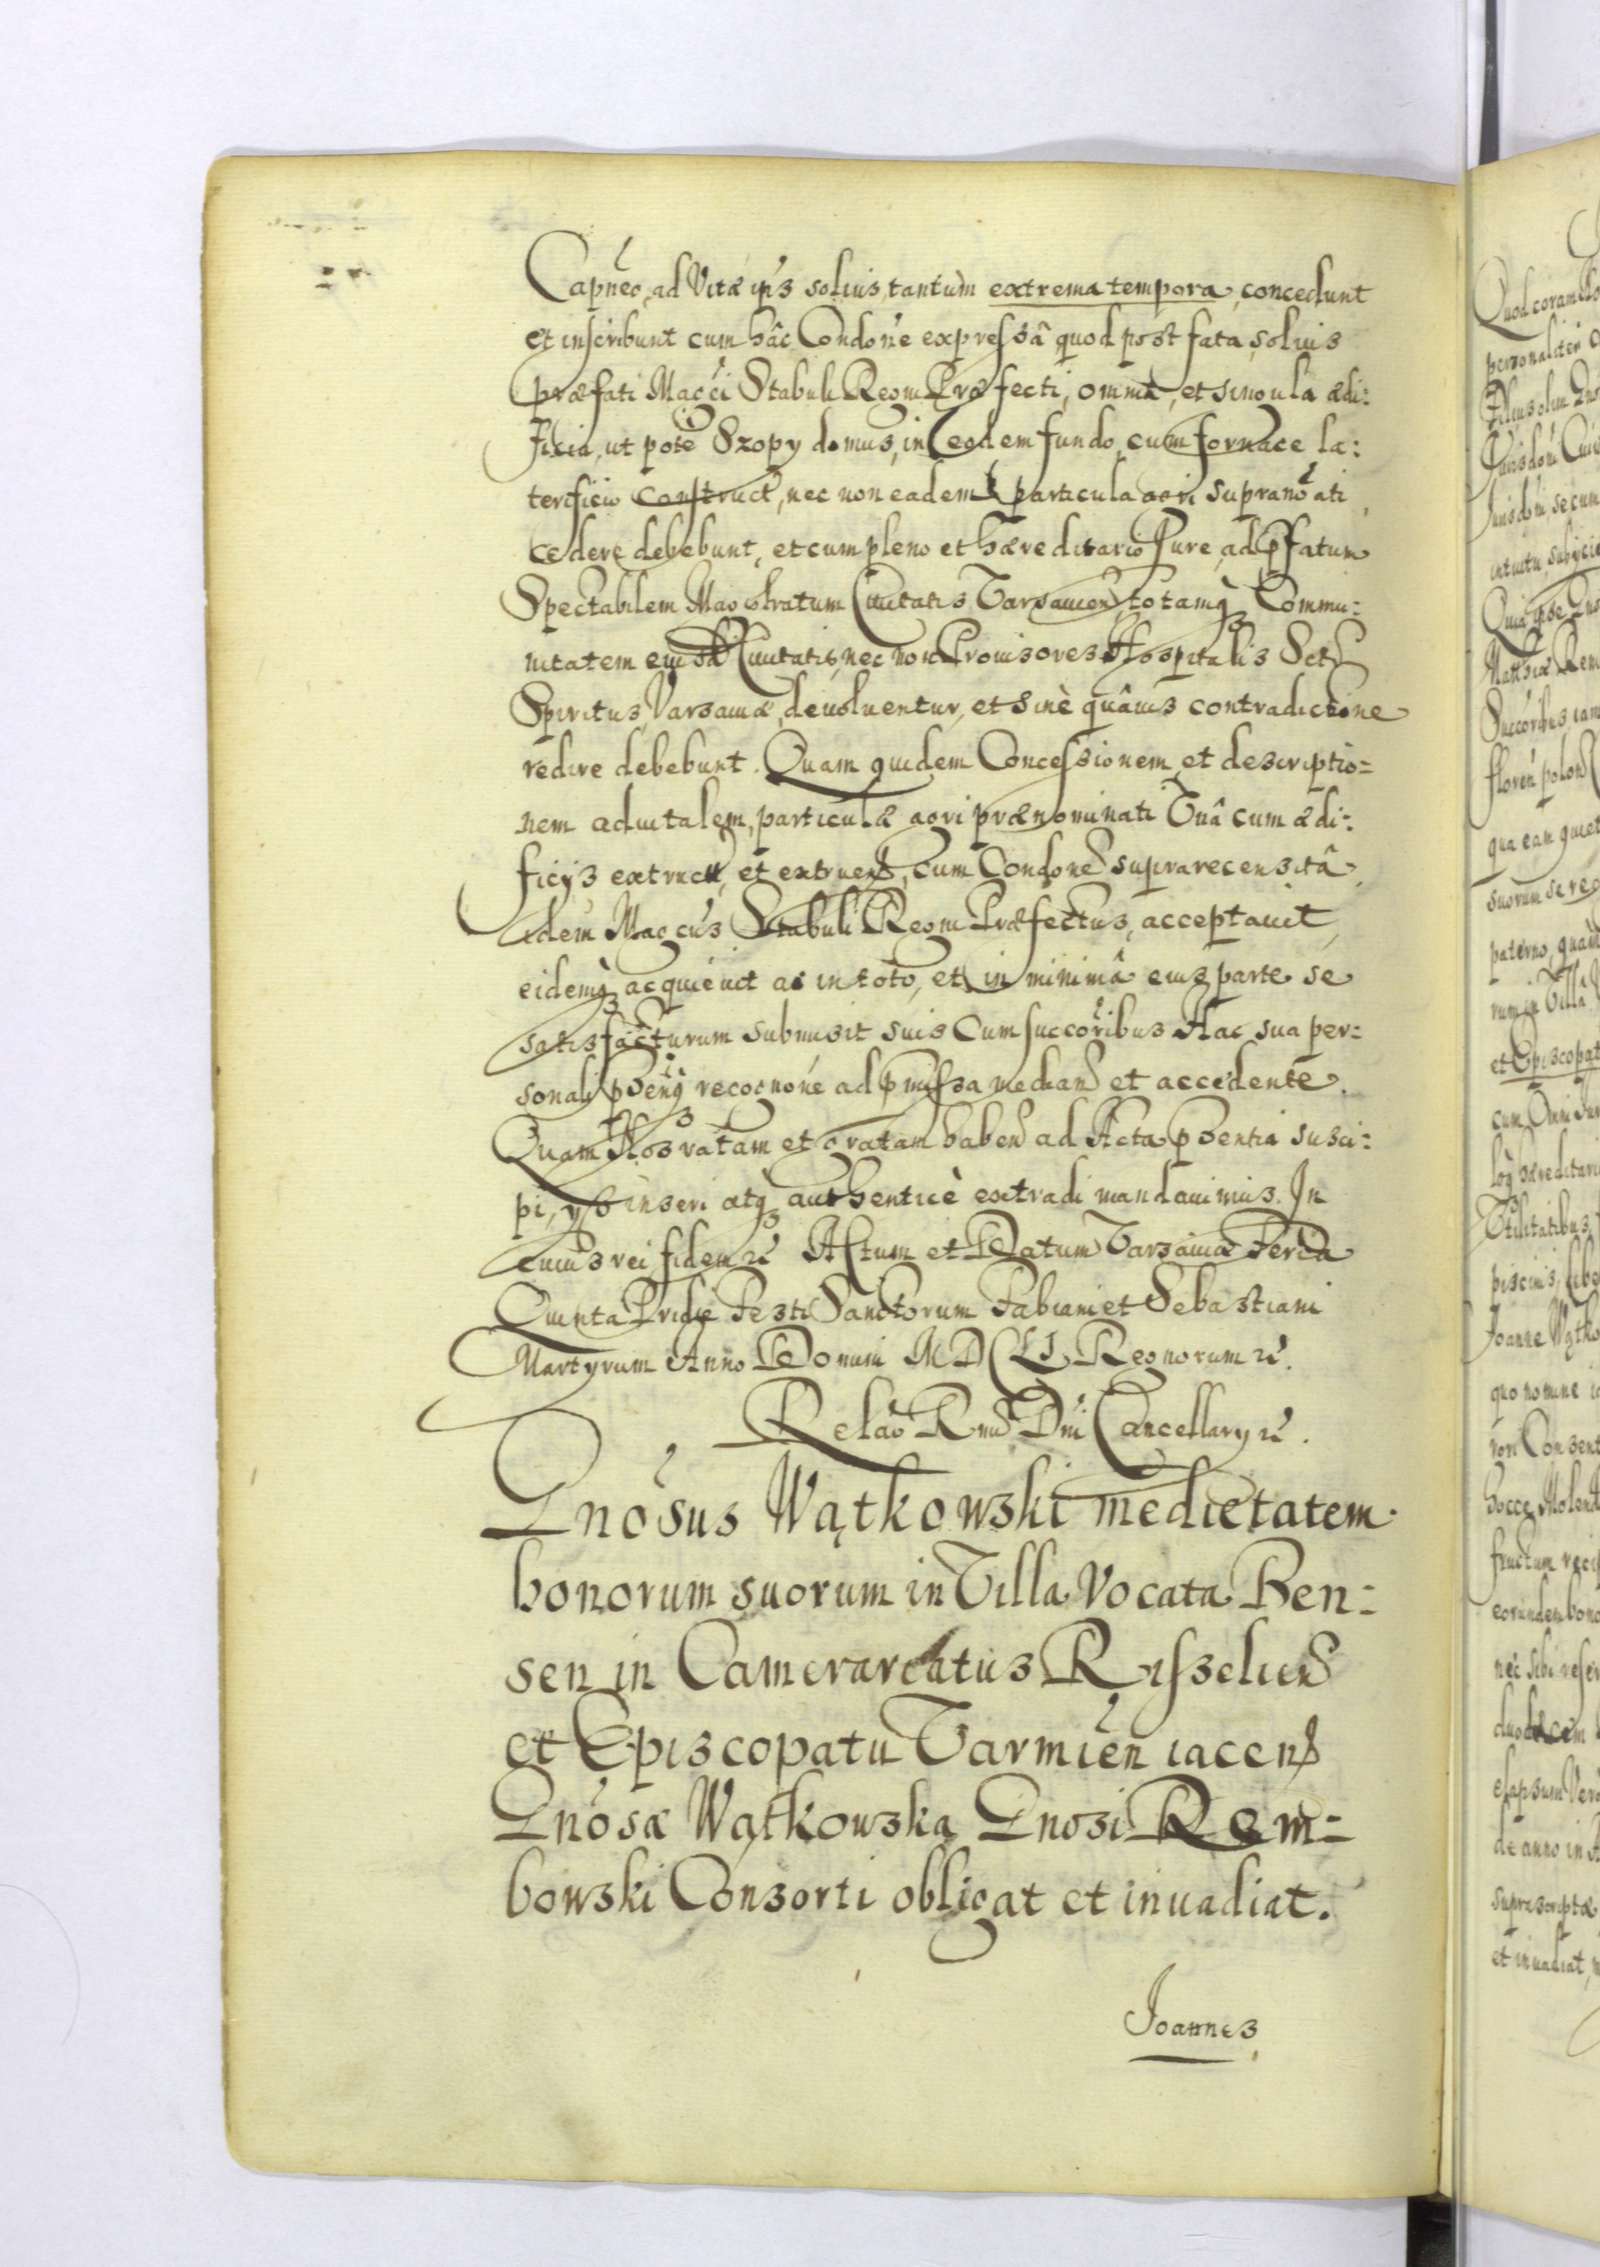 Capneo, ad Vitæ ip̃s solius, tantum extrema tempora, concedunt
et inscribunt cum hâc Condoñe expressâ quod post fata, solius
præfati Macci Stabuli Regni Præfecti, omnia, et singula ædi:
ficia, ut pote Szopy domus, in eodem fundo, cum fornace la:
terificio construct, nec non eadem particula agri supranoati
cedere debebunt, et cum pleno et hæreditario Iure, ad pffatum
Spectabilem Magistratum Ciuitatis Varsauien, totamq3 Commu:
nitatem eiusd Ciuitatis, nec non Prouisores Hospitalis Scti
Spiritus, Varsauiæ, deuoluentur, et sinè quâuis contradictione
redire debebunt. Quam quidem Concessionem, et descriptio=
nem aduitalem, particulæ agri prænominati Vnâ cum ædi:
ficijs extruct, et extruend, cum Condone suprarecensitâ,
idem Maccus Stabuli Regni Præfectus, acceptauit,
eidemq3 acquieuit ac in toto, et in minimâ eius parte se
satisfacturum submisit suis cum succoribus Hac sua per:
sonali psenq3 recognone ad pmissa median et accedente.
Quam Nos ratam et gratam haben ad Acta psentia susci:
pi, ysb inseri atq3 authenticè extradi mandauimus. In
cuius rei fidem etc Actum et Datum Varsauiæ Feria
Quinta Pridie Festi Sanctorum Fabiani et Sebastiani
Martyrum Anno Domini MDCLI. Regnorum etc.
Relao Rnd Dni Cancellarij etc.
Gnosus Wątkowski medietatem
bonorum suorum in Villa Vocata Ben=
sen in Camerarcatus Risseliend
et Episcopatu Varmien iacend
Gnosæ Wątkowska Gnosi Rem=
bowski Consorti obligat et inuadiat.
Joannes